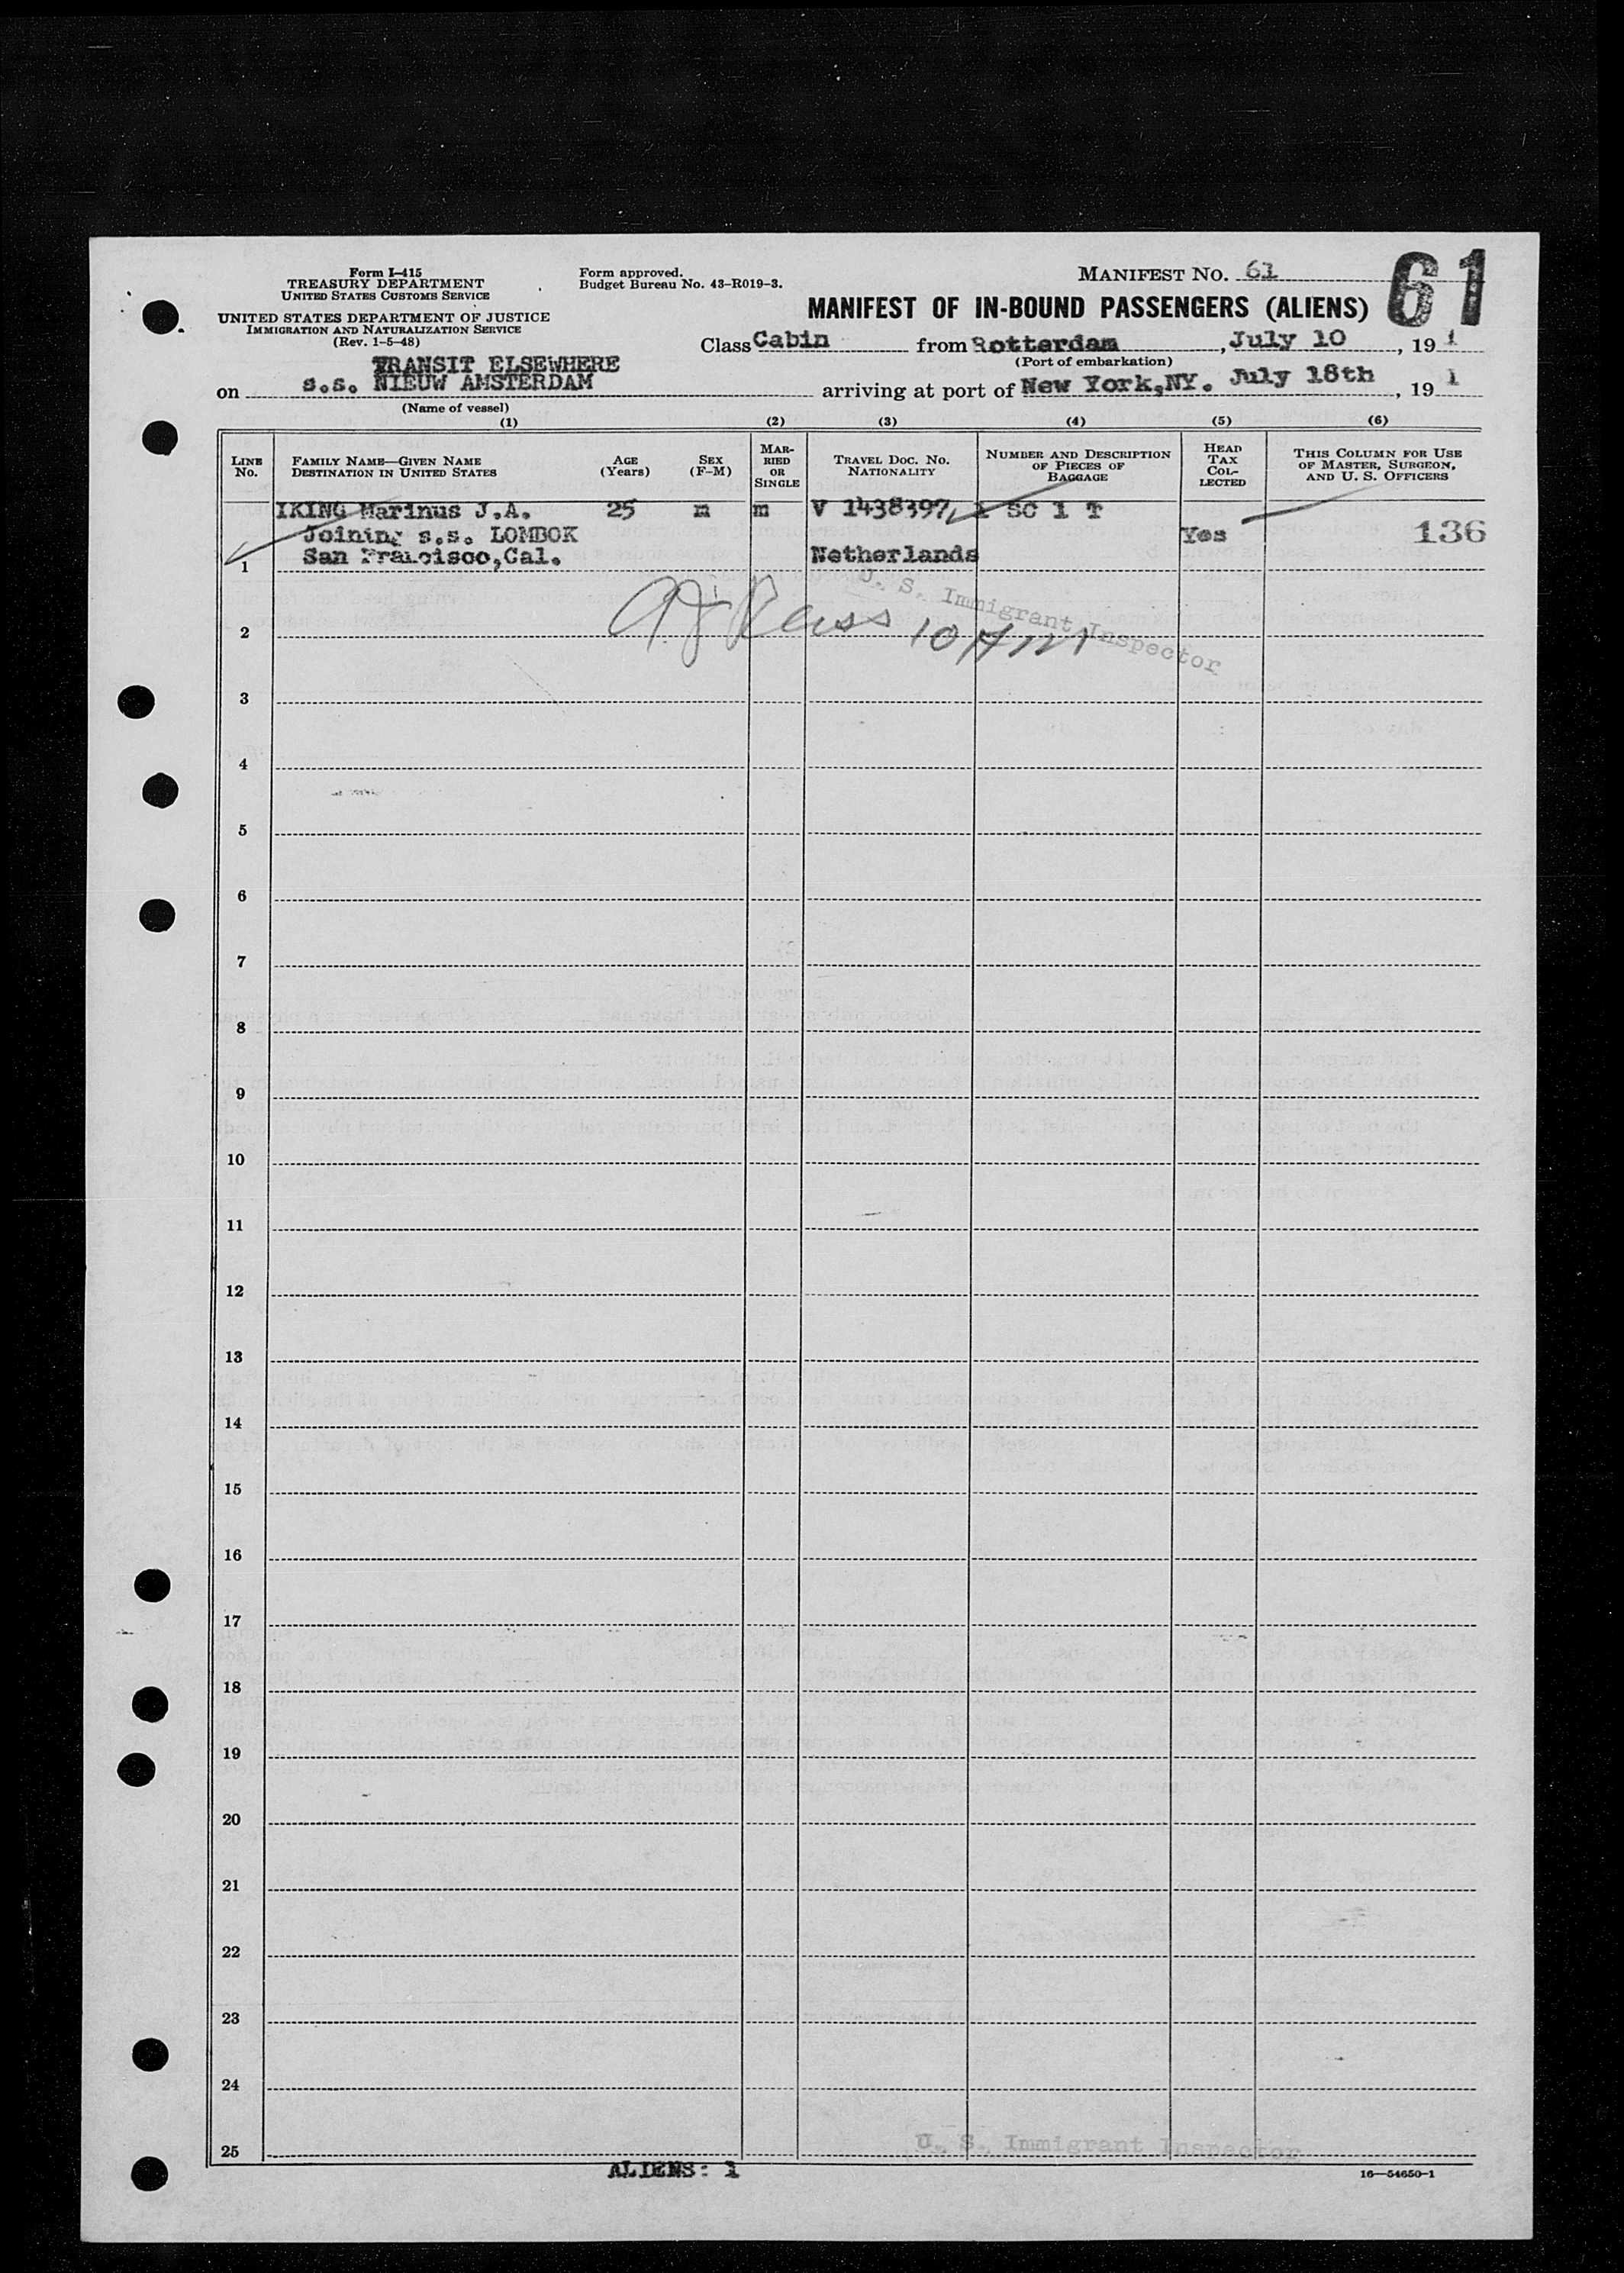 Form I-415
TREASURY DEPARTMENT
UNITED STATES CUSTOMS SERVICE
UNITED STATES DEPARTMENT OF JUSTICE
IMMIGRATION AND NATURALIZATION SERVICE
(Rev. 1-5-48)
Form approved.
Budget Bureau No. 43-R019-3.
MANIFEST NO. 61
61
MANIFEST OF IN-BOUND PASSENGERS (ALIENS)
Class Cabin from Rotterdam, July 10, 19 1
(Port of embarkation)
TRANSIT ELSEWHERE
on s.s. NIEUW AMSTERDAM arriving at port of New York,NY. July 18th, 19 1
(Name of vessel)
(1) (2) (3) (4) (5) (6)
LINE No. FAMILY NAME—GIVEN NAME DESTINATION IN UNITED STATES AGE (Years) SEX (F-M) MARRIED OR SINGLE TRAVEL DOC. NO. NATIONALITY NUMBER AND DESCRIPTION OF PIECES OF BAGGAGE HEAD TAX COLLECTED THIS COLUMN FOR USE OF MASTER, SURGEON, AND U. S. OFFICERS
IKING Marinus J.A. 25 m m V 1438397 SC 1 T
Joining s.s. LOMBOK Yes 136
San Francisco,Cal. Netherlands
1
U. S. Immigrant Inspector
10 AM
2
3
4
5
6
7
8
9
10
11
12
13
14
15
16
17
18
19
20
21
22
23
24
U. S. Immigrant Inspector
25
ALIENS: 1
16—54650-1